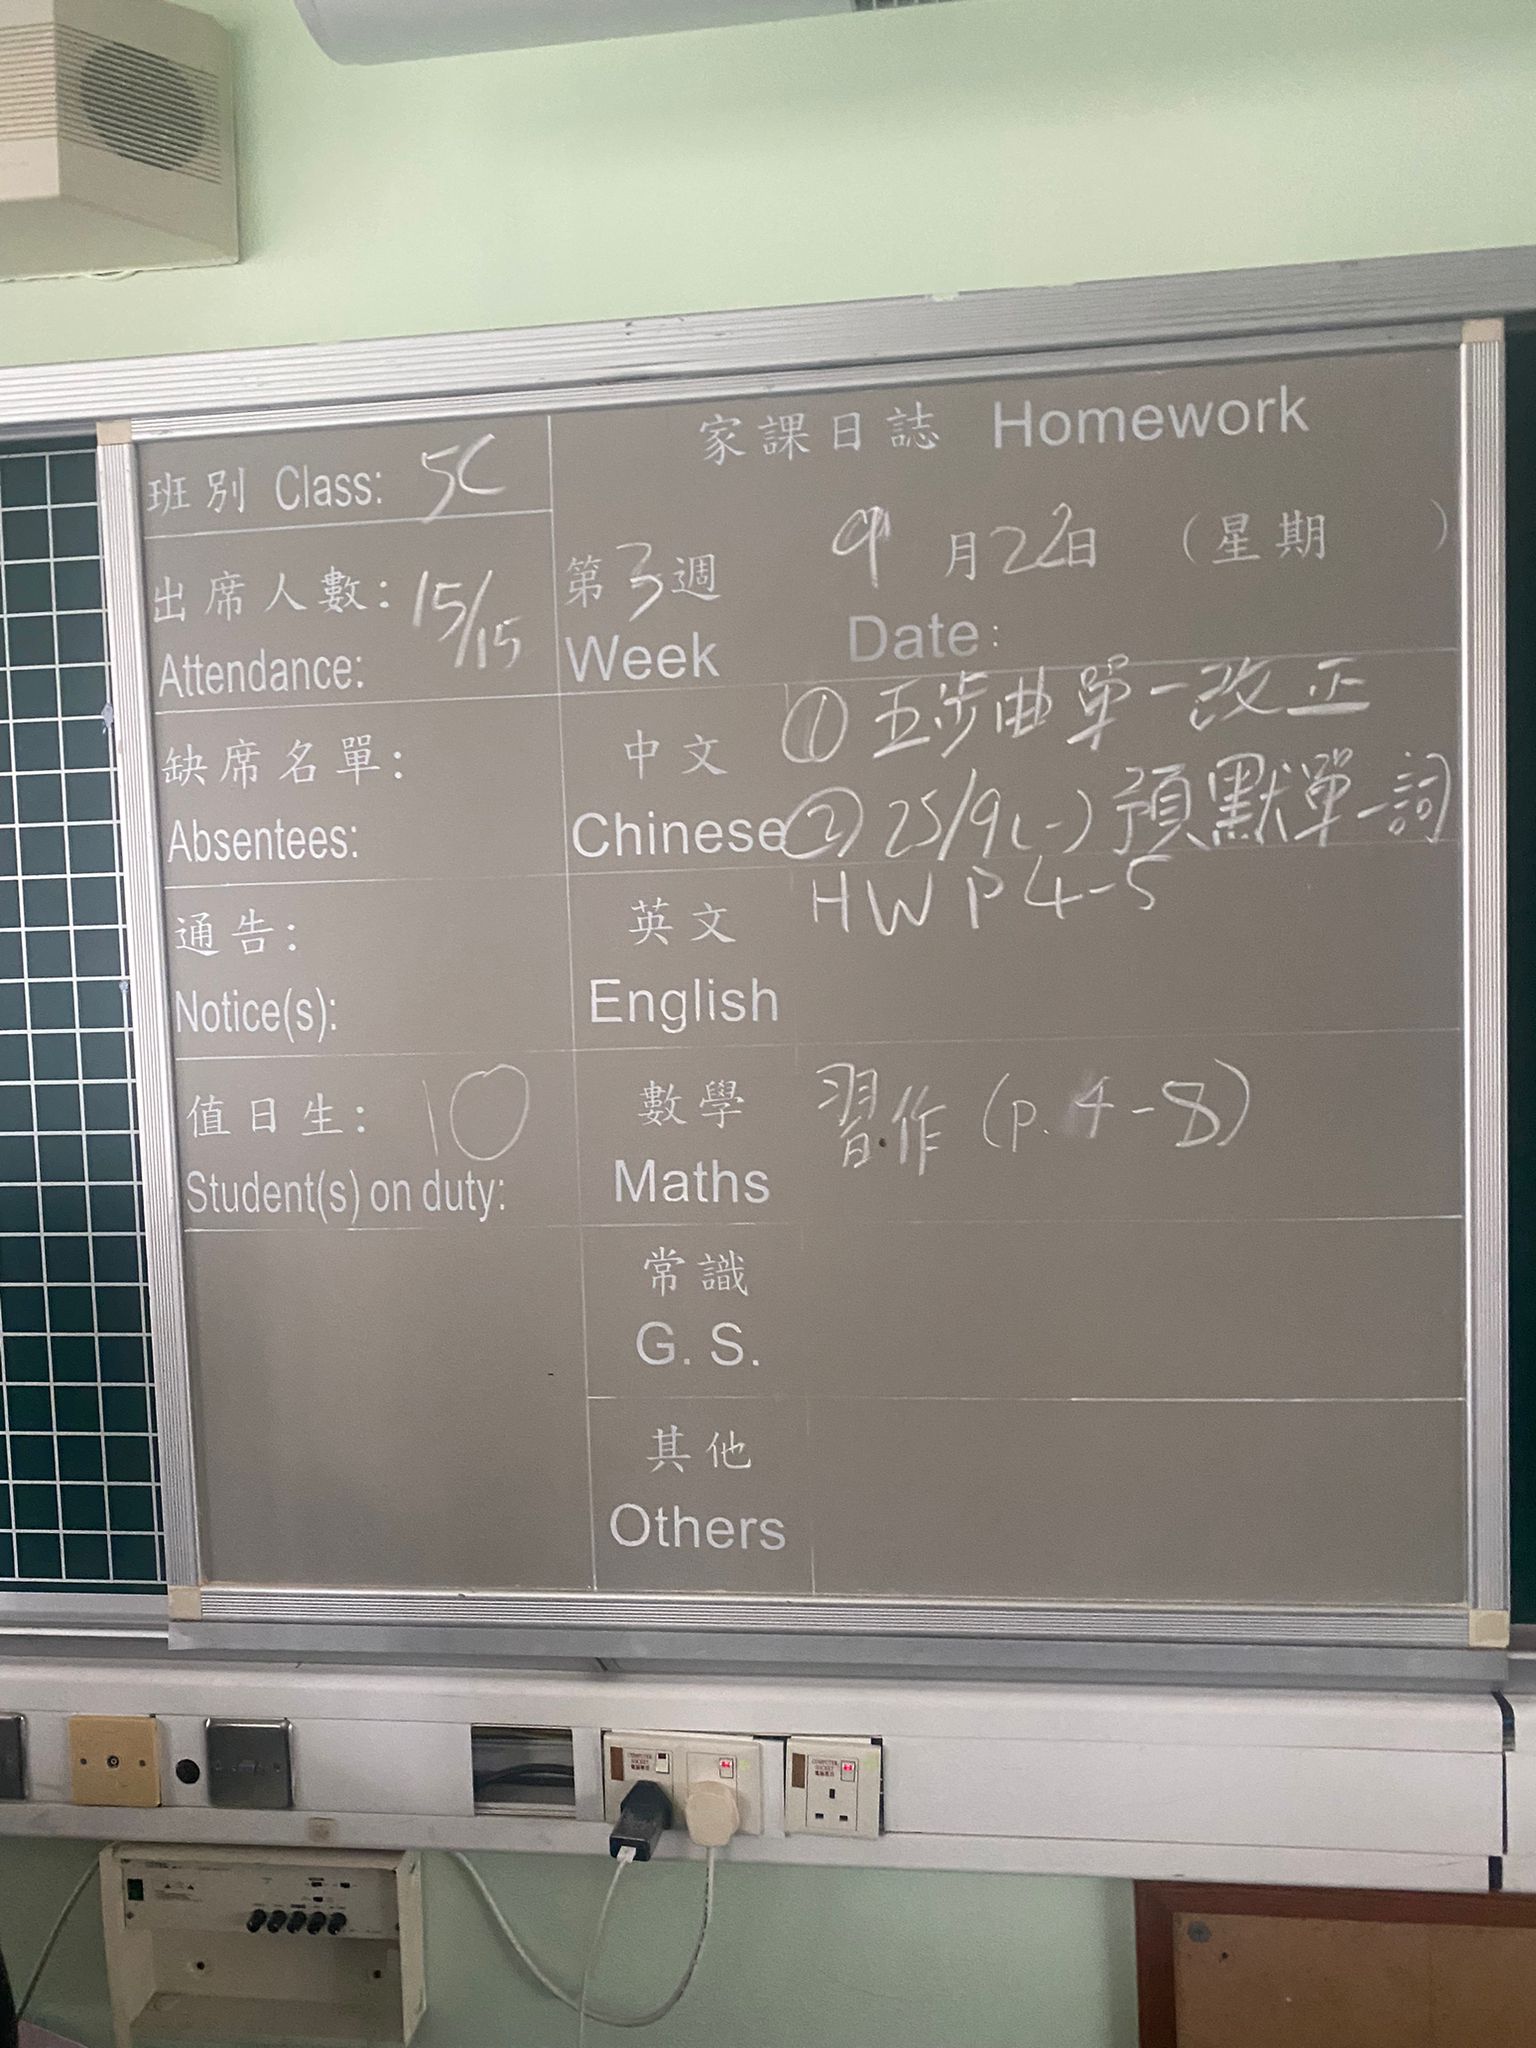 家課日誌 Homework
班別 Class: 5C
出席人數: 15/15
Attendance:
第3週
Week
9月22日 (星期 )
Date:
缺席名單:
Absentees:
中文
Chinese
① 五步曲單一改正
② 25/9(一) 預默單一詞
通告:
Notice(s):
英文
English
HW P 4-5
值日生: 10
Student(s) on duty:
數學
Maths
習作 (p. 4-8)
常識
G. S.
其他
Others
COMPUTER
SOCKET
電腦專用
COMPUTER
SOCKET
電腦專用